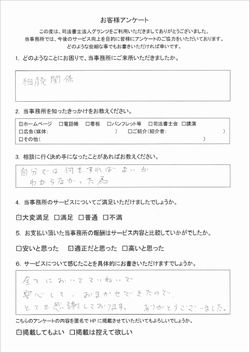 お客様アンケート
この度は、司法書士法人グランツをご利用いただきましてありがとうございました。
当事務所では、今後のサービス向上を目的に皆様にアンケートのご協力をいただいております。
どのような些細な事でもお書きいただければ幸いです。
1. どのようなことにお困りで、当事務所にご来所いただきましたか。
相続関係
2. 当事務所を知ったきっかけをお教えください。
□ホームページ □電話帳 □看板 □パンフレット等 □司法書士会 □講演
□広告(媒体: ) □ご紹介(紹介者: )
□その他( )
3. 相談に行く決め手になったことがあればお教えください。
自分では何をすればよいか
わからなかった為
4. 当事務所のサービスについてご満足いただけましたでしょうか。
☑大変満足 □満足 □普通 □不満
5. お支払い頂いた当事務所の報酬はサービス内容と比較していかがでしたか。
☑安いと思った ☑適正だと思った □高いと思った
6. サービスについて感じたことを具体的にお書きいただけますでしょうか。
全てにおいてていねいで
安心して、おまかせできたので
とても感謝しております。ありがとうございました。
こちらのアンケートの内容を匿名でHPに掲載させていただいてもよろしいでしょうか。
☑掲載してもよい □掲載は控えて欲しい